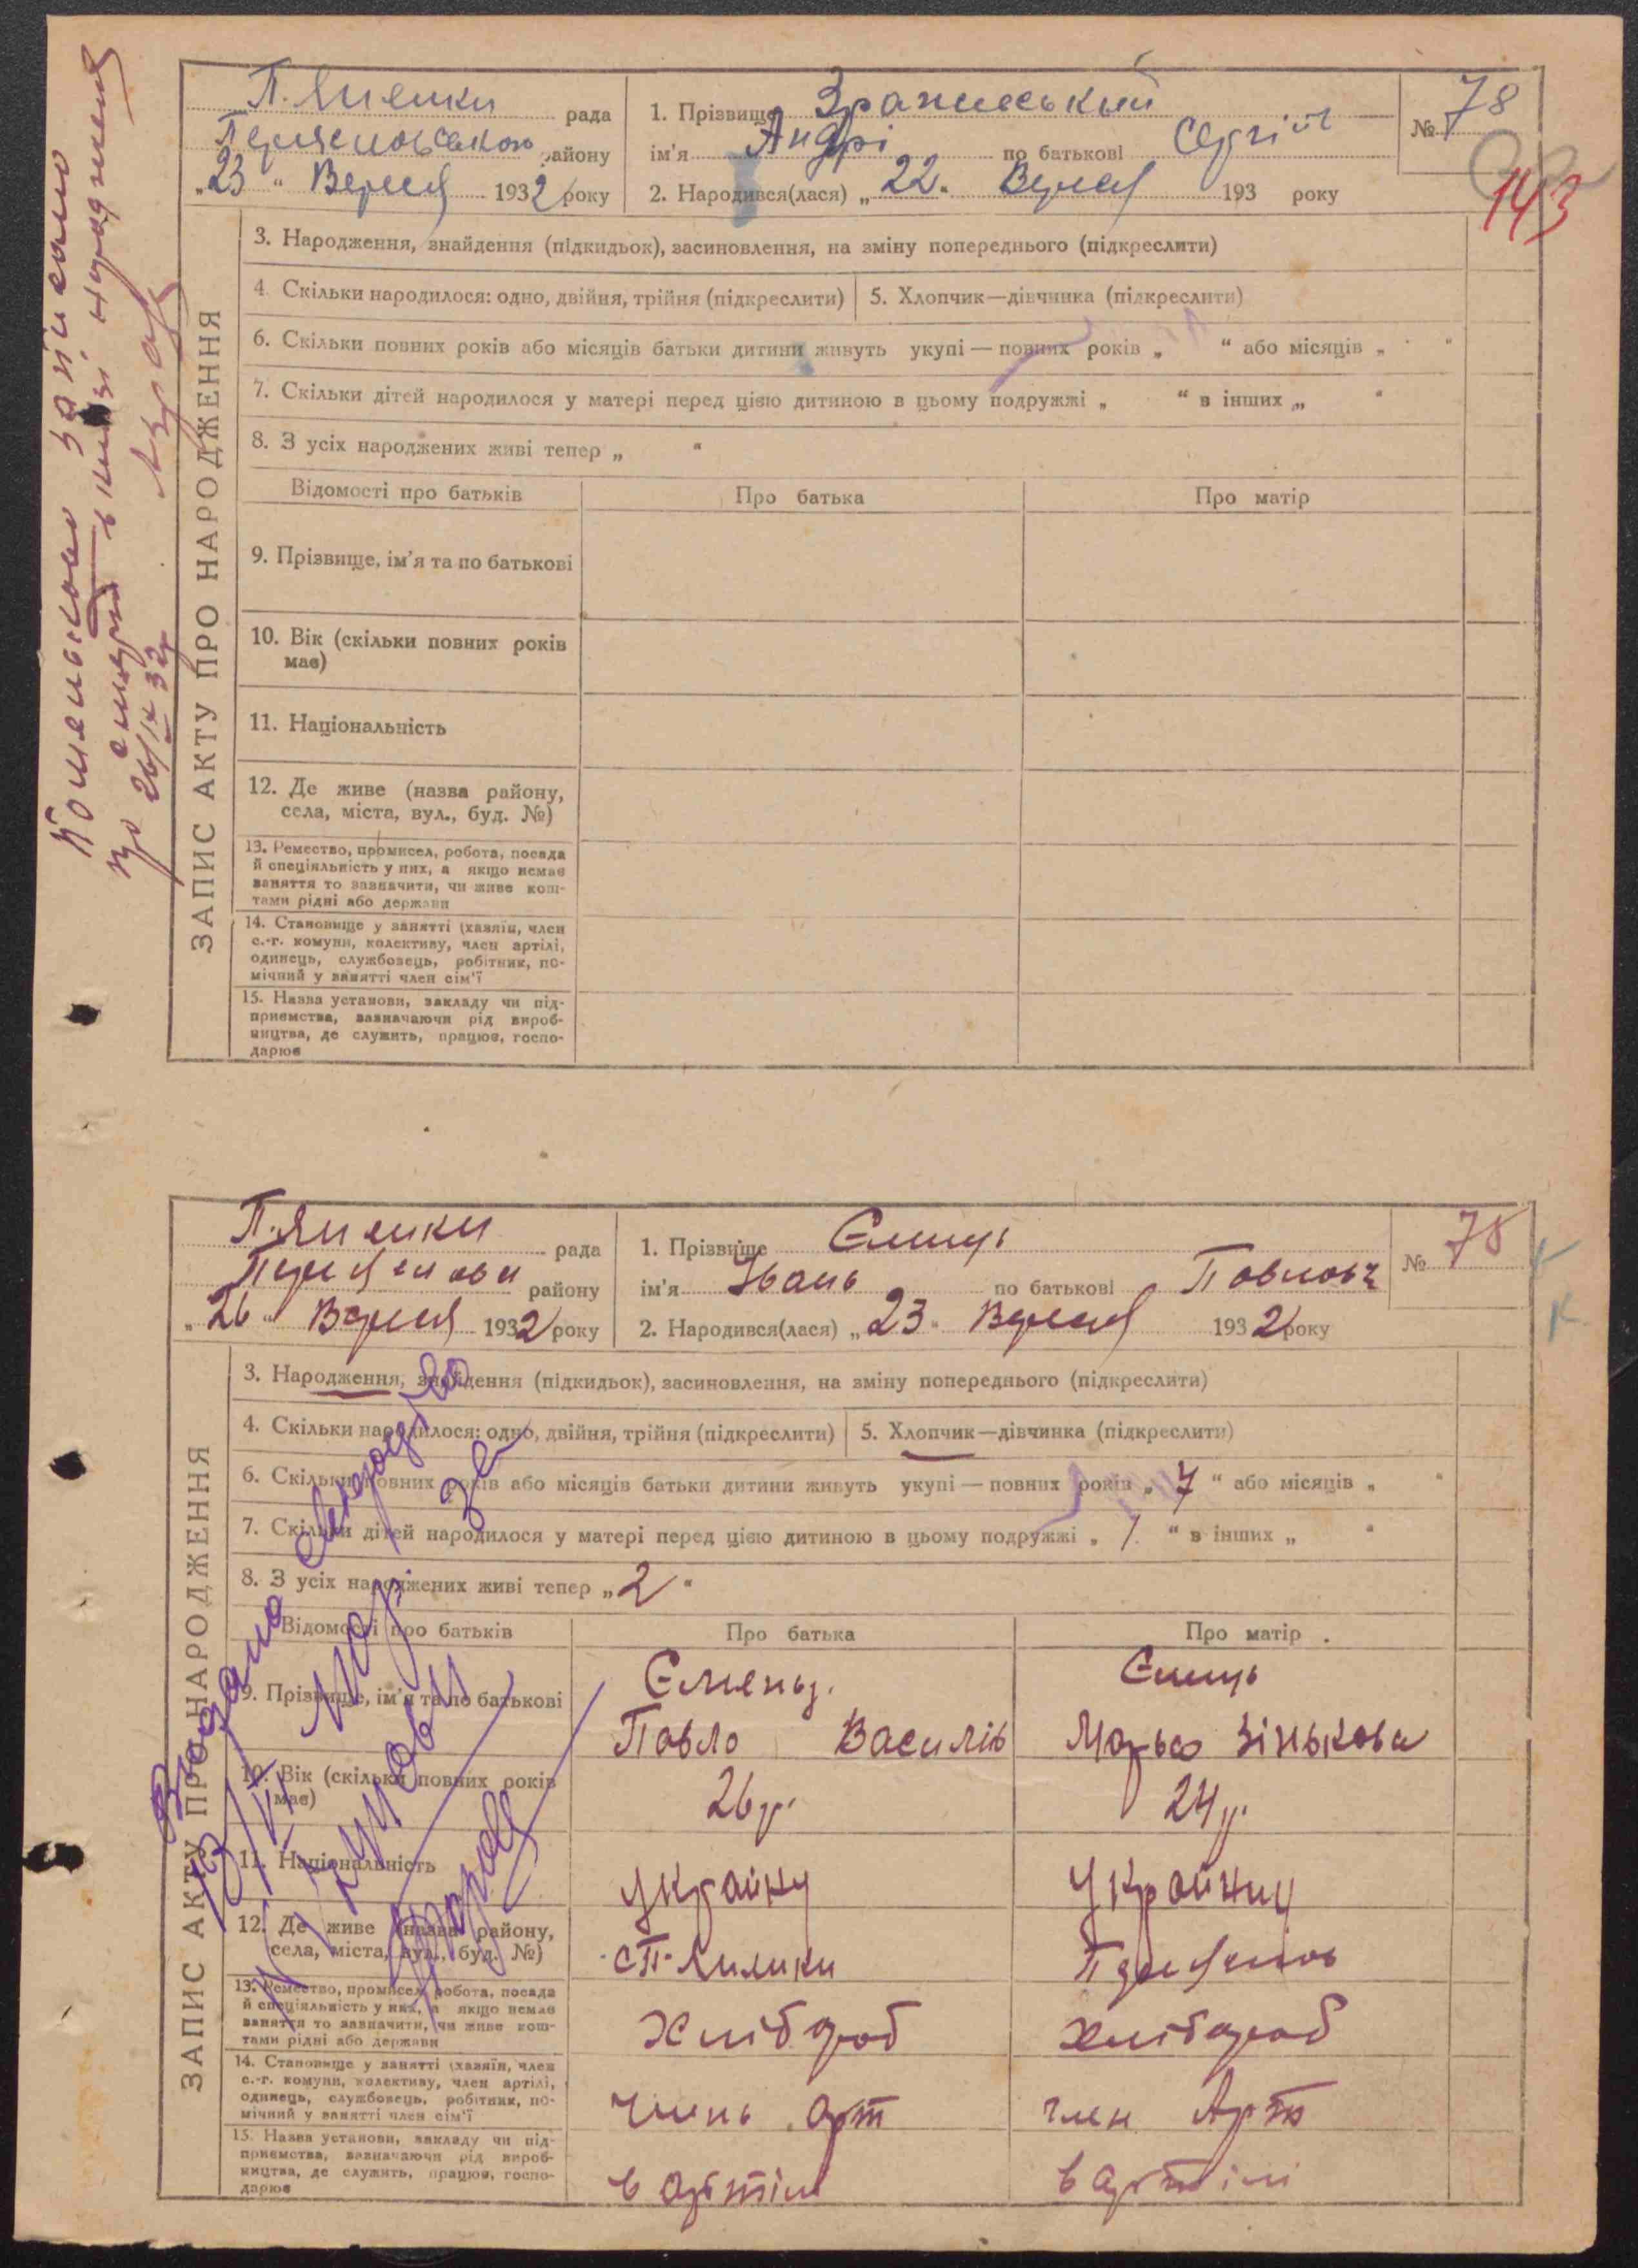 рада
району
„23“ Вересня 1932 року
1. Прізвище
ім'я Андрі по батькові Сергій
2. Народився(лася) „22“ Вересня 193 року
№ 78
143
ЗАПИС АКТУ ПРО НАРОДЖЕННЯ
3. Народження, знайдення (підкидьок), засиновлення, на зміну попереднього (підкреслити)
4. Скільки народилося: одно, двійня, трійня (підкреслити)
5. Хлопчик—дівчинка (підкреслити)
6. Скільки повних років або місяців батьки дитини живуть укупі — повних років „ “ або місяців „ “
7. Скільки дітей народилося у матері перед цією дитиною в цьому подружжі „ “ в інших „ “
8. З усіх народжених живі тепер „ “
Відомості про батьків
Про батька
Про матір
9. Прізвище, ім'я та по батькові
10. Вік (скільки повних років
має)
11. Національність
12. Де живе (назва району,
села, міста, вул., буд. №)
13. Ремество, промисел, робота, посада
й спеціяльність у них, а якщо немає
заняття то зазначити, чи живе кош-
тами рідні або держави
14. Становище у занятті (хазяїн, член
с.-г. комуни, колективу, член артілі,
одинець, службовець, робітник, по-
мічний у занятті член сім'ї
15. Назва установи, закладу чи під-
приємства, зазначаючи рід вироб-
ництва, де служить, працює, госпо-
дарює
рада
району
„26“ Вересня 1932 року
1. Прізвище Ємець
ім'я Івань по батькові Павлович
2. Народився(лася) „23“ Вересня 1932 року
№ 78
ЗАПИС АКТУ ПРО НАРОДЖЕННЯ
3. Народження, знайдення (підкидьок), засиновлення, на зміну попереднього (підкреслити)
4. Скільки народилося: одно, двійня, трійня (підкреслити)
5. Хлопчик—дівчинка (підкреслити)
6. Скільки повних років або місяців батьки дитини живуть укупі — повних років „7“ або місяців „ “
7. Скільки дітей народилося у матері перед цією дитиною в цьому подружжі „1“ в інших „ “
8. З усіх народжених живі тепер „2“
Відомості про батьків
Про батька
Про матір
9. Прізвище, ім'я та по батькові
Ємець
Ємець
Павло Василів
Марья Зінькова
10. Вік (скільки повних років
має)
26 р.
24 р.
11. Національність
україн
україн
12. Де живе (назва району,
села, міста, вул., буд. №)
13. Ремество, промисел, робота, посада
й спеціяльність у них, а якщо немає
заняття то зазначити, чи живе кош-
тами рідні або держави
хлібороб
хлібороб
14. Становище у занятті (хазяїн, член
с.-г. комуни, колективу, член артілі,
одинець, службовець, робітник, по-
мічний у занятті член сім'ї
член арт
член Арт
15. Назва установи, закладу чи під-
приємства, зазначаючи рід вироб-
ництва, де служить, працює, госпо-
дарює
в артілі
в артілі